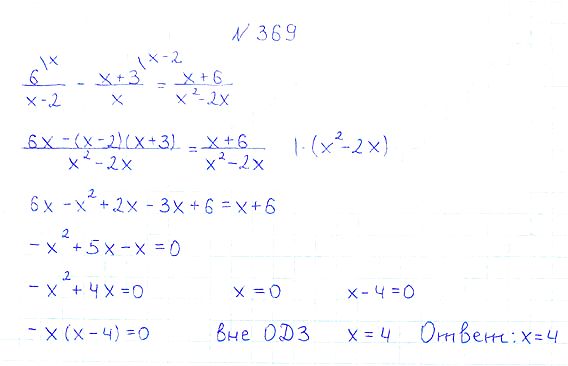 N 369
6\x/(x-2) - (x+3)\x-2/x = (x+6)/(x²-2x)
(6x-(x-2)(x+3))/(x²-2x) = (x+6)/(x²-2x) |·(x²-2x)
6x-x²+2x-3x+6=x+6
-x²+5x-x=0
-x²+4x=0 x=0 x-4=0
-x(x-4)=0 вне ОДЗ x=4 Ответ: x=4